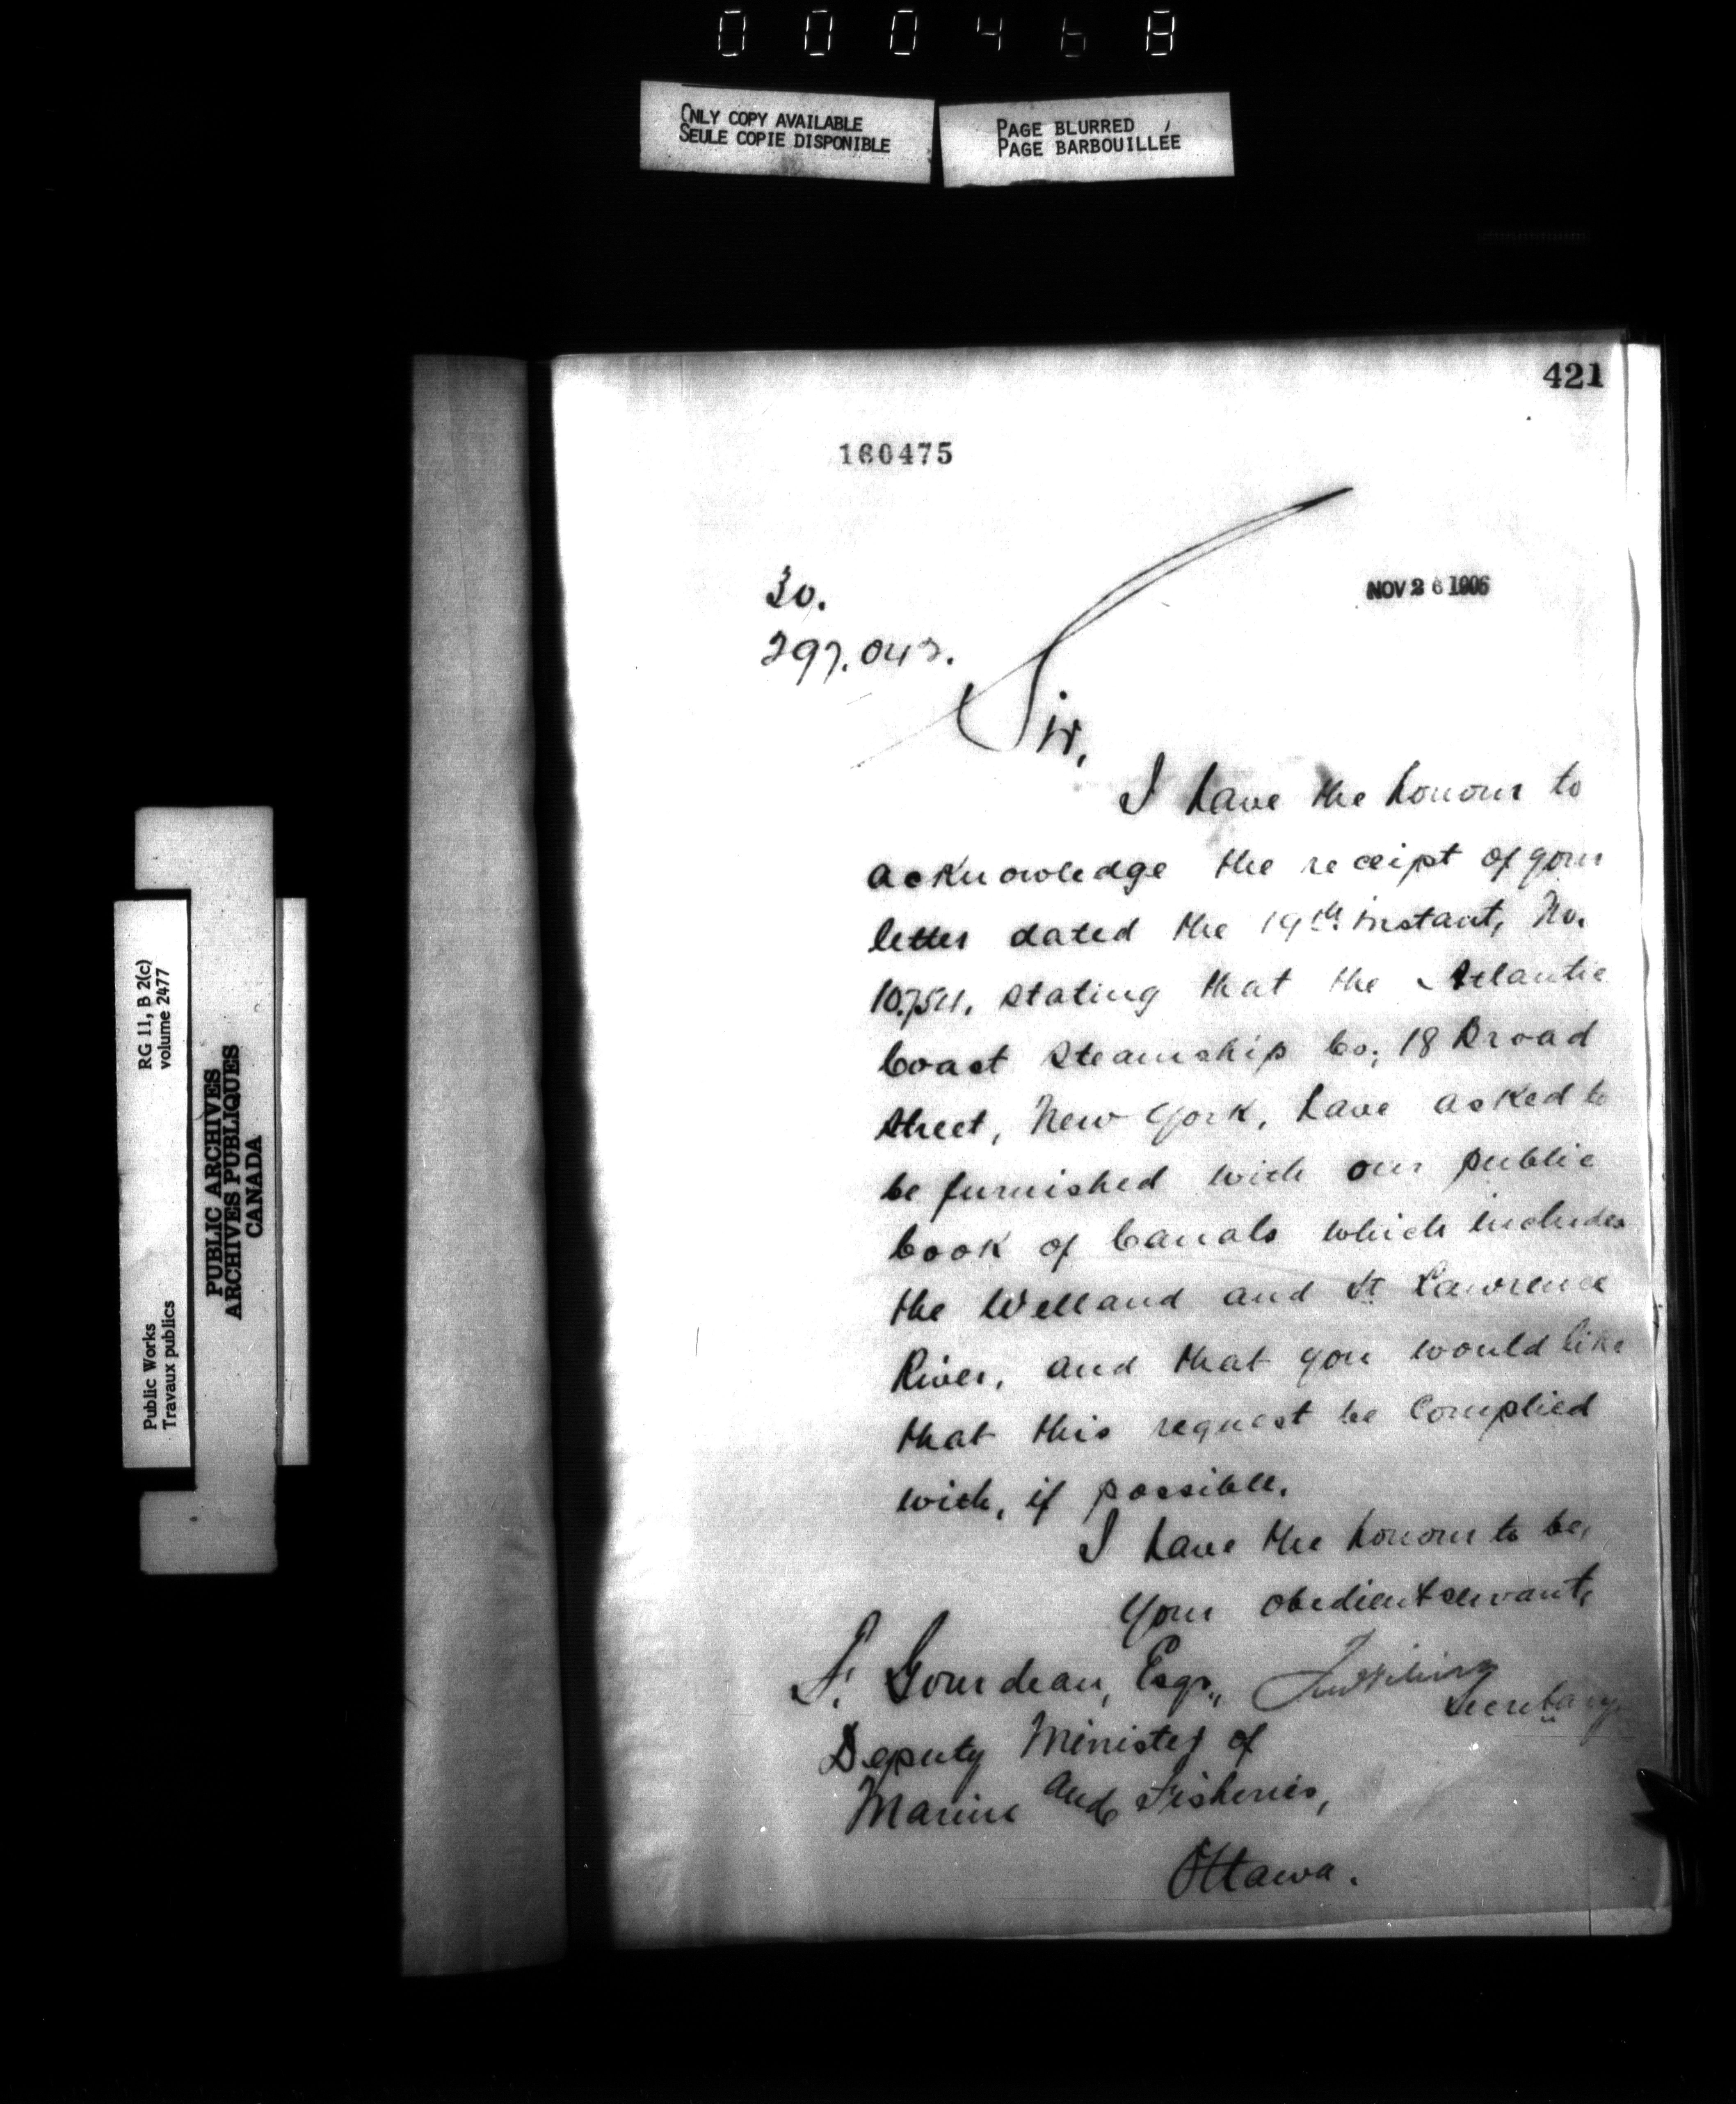 000468
ONLY COPY AVAILABLE
SEULE COPIE DISPONIBLE
PAGE BLURRED
PAGE BARBOUILLÉE
421
160475
NOV 26 1906
30.
297.042.
Sir,
I have the honour to
acknowledge the receipt of your
letter dated the 19th instant, No.
10.754, stating that the Atlantic
Coast Steamship Co; 18 Broad
Street, New York, have asked to
be furnished with our public
book of Canals which includes
the Welland and St Lawrence
River, and that you would like
that this request be complied
with, if possible.
I have the honour to be,
Your obedient servant,
F. Gourdeau, Esq.,
Secretary
Deputy Minister of
Marine and Fisheries,
Ottawa.
RG 11, B 2(c)
volume 2477
Public Works
Travaux publics
PUBLIC ARCHIVES
ARCHIVES PUBLIQUES
CANADA